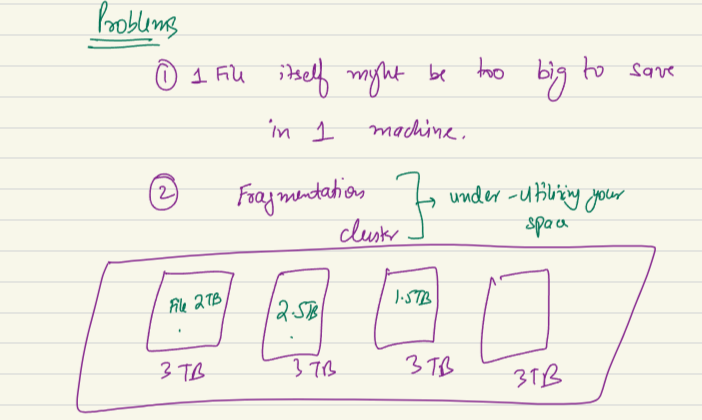 Problems
① 1 File itself might be too big to save
in 1 machine.
② Fragmentation → under-utilizing your
cluster space
File 2TB 2.5TB 1.5TB
3 TB 3 TB 3 TB 3TB